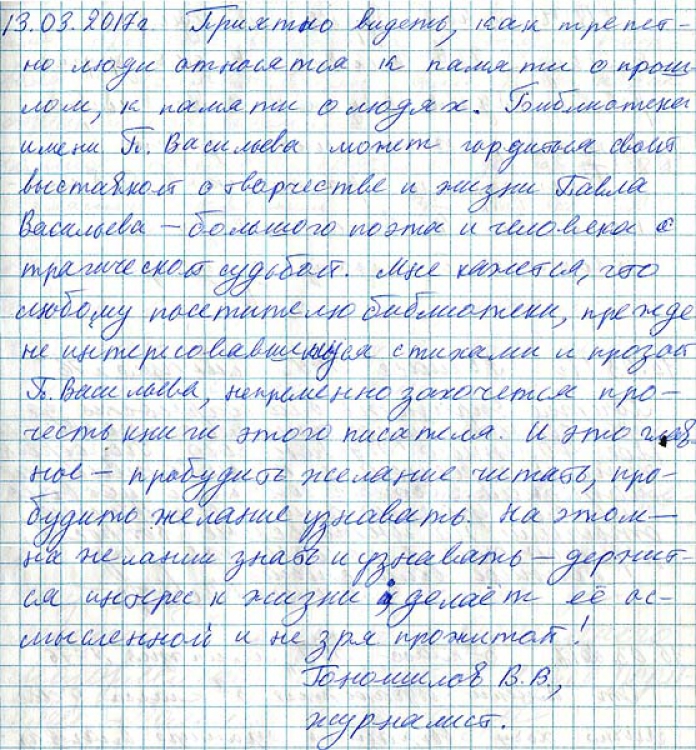 13.03.2017г Приятно видеть, как трепет-
но люди относятся к памяти о прош-
лом, к памяти о людях. Библиотека
имени П. Васильева может гордиться своей
выставкой о творчестве и жизни Павла
Васильева – большого поэта и человека с
трагической судьбой. Мне кажется, что
любому посетителю библиотеки, прежде
не интересовавшемуся стихами и прозой
П. Васильева, непременно захочется про-
честь книги этого писателя. И это глав-
ное – пробудить желание читать, про-
будить желание узнавать. На этом –
на желании знать и узнавать – держит-
ся интерес к жизни и делает её ос-
мысленной и не зря прожитой!
В.В.,
журналист.